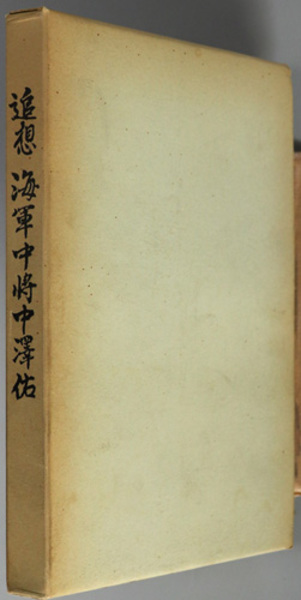 追想 海軍中将中澤佑